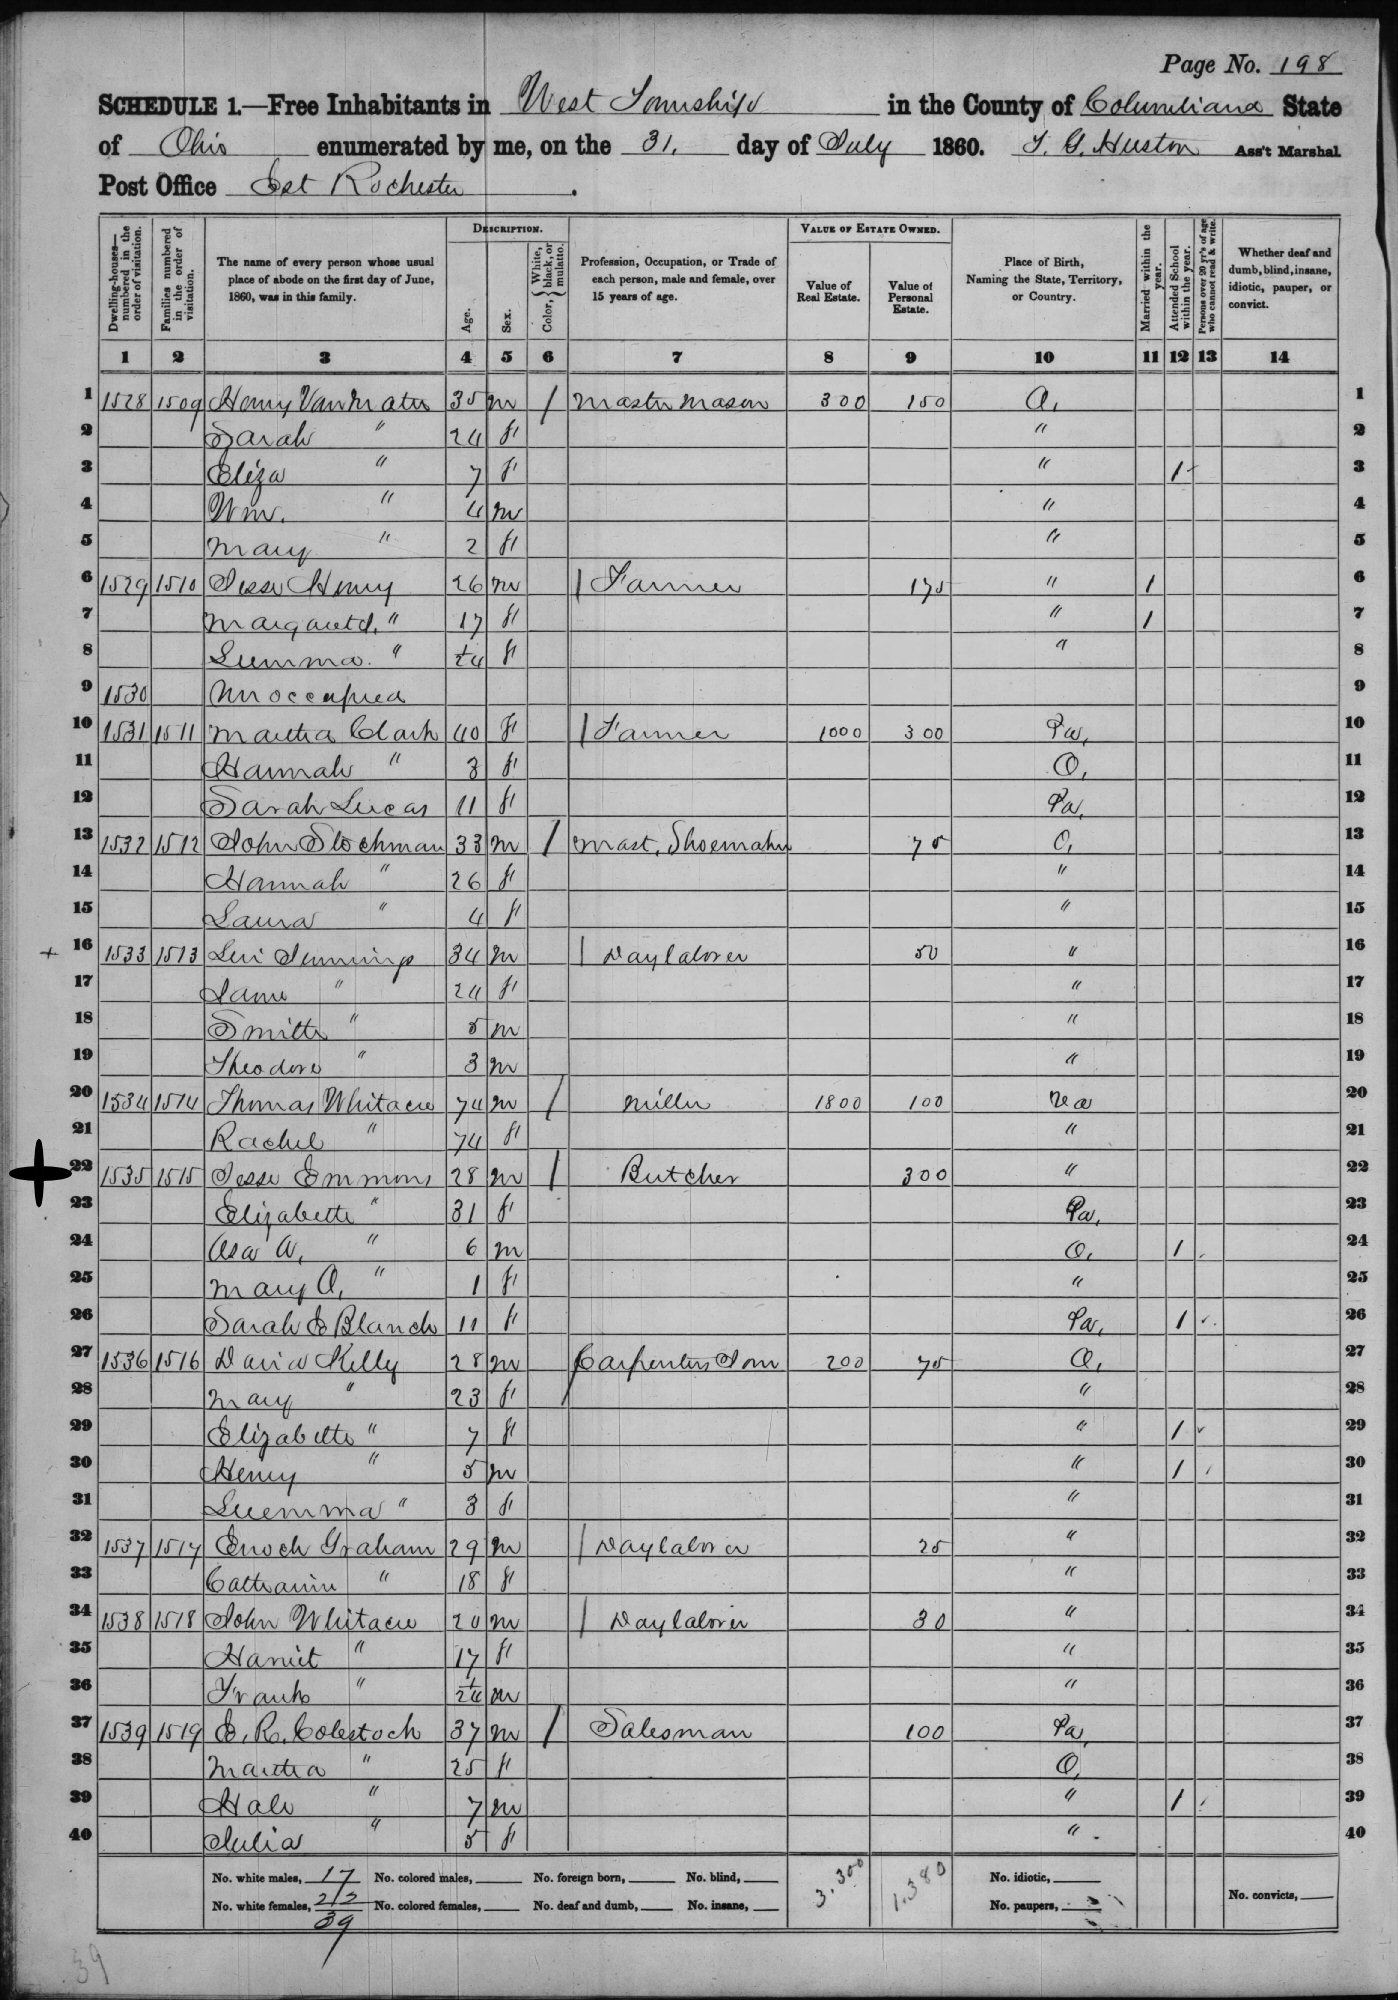 Page No. 198
SCHEDULE 1.—Free Inhabitants in West Township in the County of Columbiana State
of Ohio enumerated by me, on the 31. day of July 1860. T. G. Huston Ass't Marshal
Post Office East Rochester.
Dwelling-houses— numbered in the order of visitation.
Families numbered in the order of visitation.
The name of every person whose usual place of abode on the first day of June, 1860, was in this family.
DESCRIPTION.
Age.
Sex.
Color, { White, black, or mulatto.
Profession, Occupation, or Trade of each person, male and female, over 15 years of age.
VALUE OF ESTATE OWNED.
Value of Real Estate.
Value of Personal Estate.
Place of Birth, Naming the State, Territory, or Country.
Married within the year.
Attended School within the year.
Persons over 20 yr's of age who cannot read & write.
Whether deaf and dumb, blind, insane, idiotic, pauper, or convict.
1 2 3 4 5 6 7 8 9 10 11 12 13 14
1 1528 1509 Henry VanMater 35 m / Master Mason 300 150 O, 1
2 Sarah " 24 f " 2
3 Eliza " 7 f " 1 3
4 Wm. " 4 m " 4
5 Mary " 2 f " 5
6 1529 1510 Jesse Henry 26 m / Farmer 175 " 1 6
7 Margaret J. " 17 f " 1 7
8 Luemma. " 1/24 f " 8
9 1530 Unoccupied 9
10 1531 1511 Martha Clark 40 f / Farmer 1000 300 Pa, 10
11 Hannah " 3 f O, 11
12 Sarah Lucas 11 f Pa, 12
13 1532 1512 John Stockman 33 m / Mast. Shoemaker 75 O, 13
14 Hannah " 26 f " 14
15 Laura " 4 f " 15
+ 16 1533 1513 Levi Jennings 34 m / Day laborer 50 " 16
17 Jane " 24 f " 17
18 Smith " 5 m " 18
19 Theodore " 3 m " 19
20 1534 1514 Thomas Whitacre 74 m / Miller 1800 100 Va 20
21 Rachel " 74 f " 21
22 1535 1515 Jesse Emmons 28 m / Butcher 300 " 22
23 Elizabeth " 31 f Pa, 23
24 Asa A, " 6 m O, 1 24
25 Mary O, " 1 f " 25
26 Sarah E Blanch 11 f Pa, 1 26
27 1536 1516 David Kelly 28 m Carpenters Jour 200 75 O, 27
28 Mary " 23 f " 28
29 Elizabeth " 7 f " 1 29
30 Henry " 5 m " 1 30
31 Luemma " 3 f " 31
32 1537 1517 Enoch Graham 29 m / Day laborer 25 " 32
33 Catharine " 18 f " 33
34 1538 1518 John Whitacre 20 m / Day laborer 30 " 34
35 Harriet " 17 f " 35
36 Frank " 1/24 m " 36
37 1539 1519 E. R. Colestock 37 m / Salesman 100 Pa, 37
38 Martha " 25 f O, 38
39 Hale " 7 m " 1 39
40 Julia " 5 f " 40
No. white males, 17 No. colored males, No. foreign born, No. blind, 3.300 1.380 No. idiotic,
No. white females, 22 No. colored females, No. deaf and dumb, No. insane, No. paupers, No. convicts,
39
39